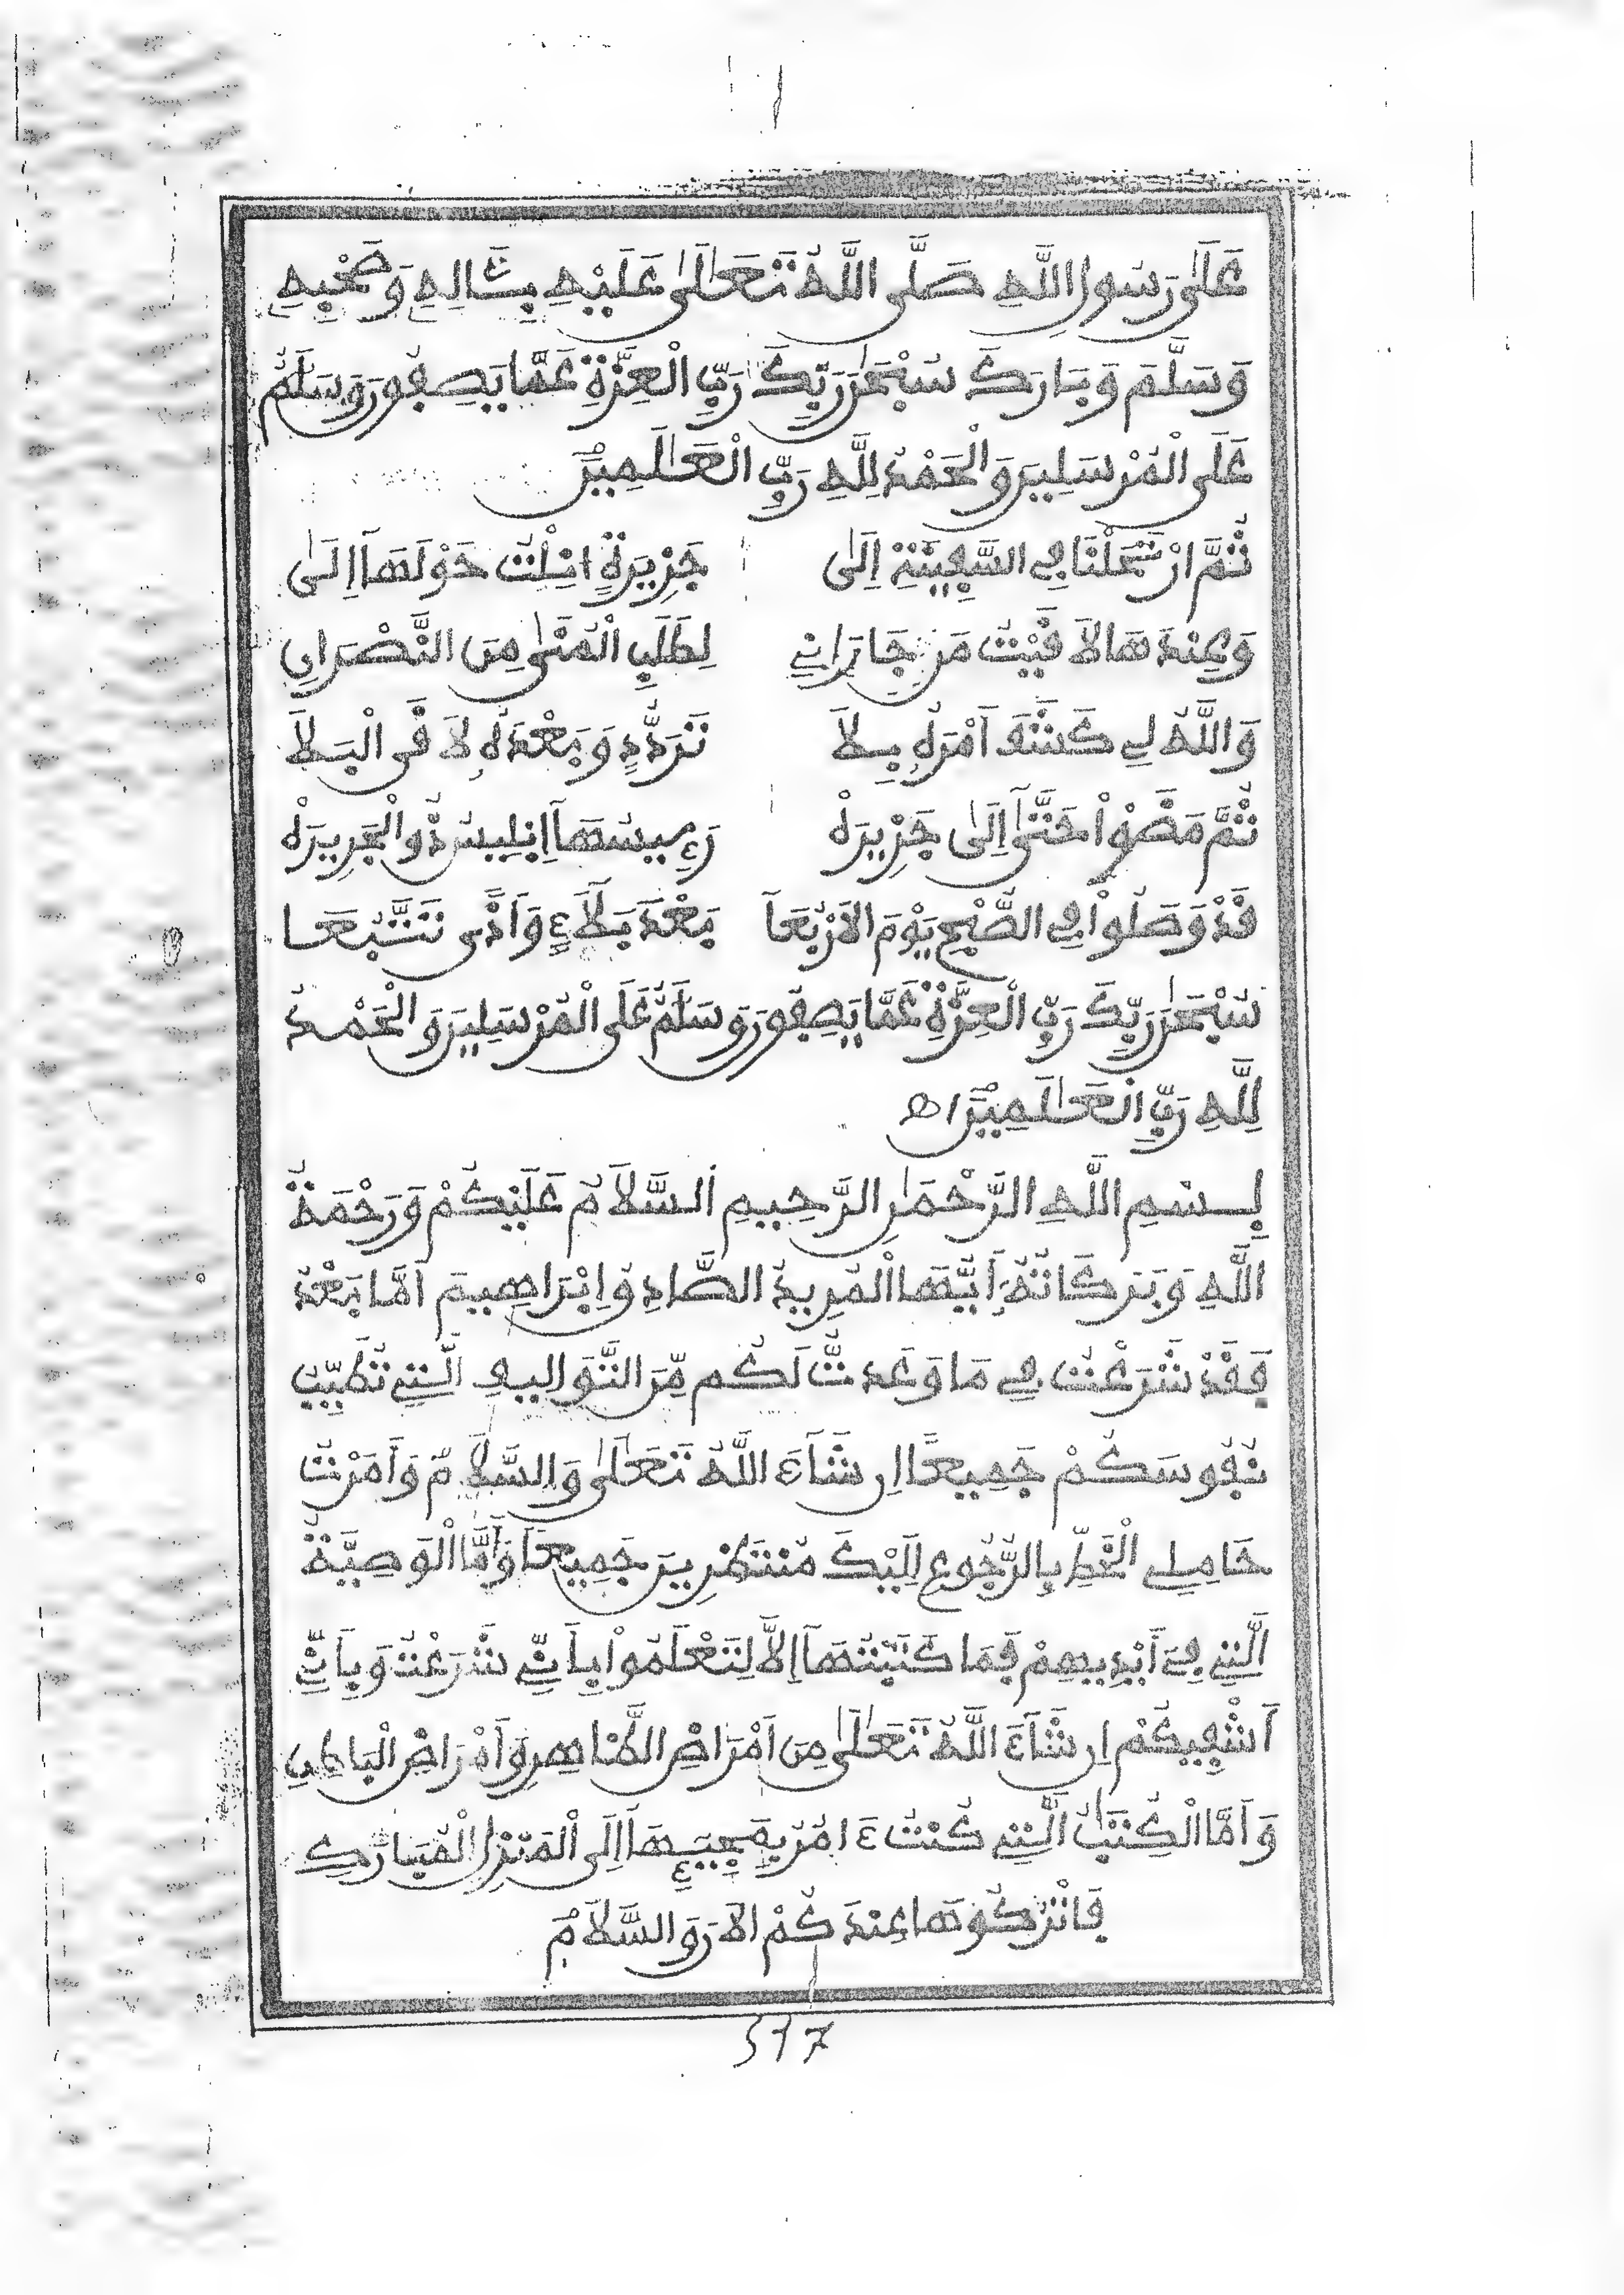 عَلَىٰ رَسُولِ اللَّهِ صَلَّى اللَّهُ تَعَالَىٰ عَلَيْهِ بِـَٔالِهِ وَصَحْبِهِ
وَسَلَّمَ وَبَارَكَ سُبْحَٰنَ رَبِّكَ رَبِّ الْعِزَّةِ عَمَّا يَصِفُونَ وَسَلَٰمٌ
عَلَى الْمُرْسَلِينَ وَالْحَمْدُ لِلَّهِ رَبِّ الْعَٰلَمِينَ
ثُمَّ ارْتَحَلْنَا فِي السَّفِينَةِ إِلَىٰ جَزِيرَةٍ حَوْلَهَا إِلَىٰ
وَعِنْدَهَا لَاقَيْتُ مَن جَارَانِي لِطَلَبِ الْمُنَىٰ مِنَ النَّصْرَانِ
وَاللَّهُ لِي أَمْرَهُ بِلَا تَرَدُّدٍ وَبَعْدَهُ لَاقَى الْبَلَا
ثُمَّ مَضَوْا حَتَّىٰ إِلَىٰ جَزِيرَهْ رَءِيسُهَا إِبْلِيسُ ذُو الْجَرِيرَهْ
قَدْ وَصَلُوا فِي الصُّبْحِ يَوْمَ الْأَرْبَعَا بَعْدَ بَلَاءٍ وَأَذًى تَتَبَّعَا
سُبْحَٰنَ رَبِّكَ رَبِّ الْعِزَّةِ عَمَّا يَصِفُونَ وَسَلَٰمٌ عَلَى الْمُرْسَلِينَ وَالْحَمْدُ
لِلَّهِ رَبِّ الْعَٰلَمِينَ اه
بِسْمِ اللَّهِ الرَّحْمَٰنِ الرَّحِيمِ السَّلَامُ عَلَيْكُمْ وَرَحْمَةُ
اللَّهِ وَبَرَكَاتُهُ أَيُّهَا الْمُرِيدُ الصَّادِقُ إِبْرَاهِيمَ أَمَّا بَعْدُ
فَقَدْ شَرَعْتُ فِي مَا وَعَدتُّ لَكُم مِّنَ التَّوَالِيفِ الَّتِي تُطَيِّبُ
نُفُوسَكُمْ جَمِيعًا إِن شَآءَ اللَّهُ تَعَالَىٰ وَالسَّلَامُ وَأَمَرْتُ
حَامِلِي الْخَطِّ بِالرُّجُوعِ إِلَيْكَ مُنتَظِرِينَ جَمِيعًا وَأَمَّا الْوَصِيَّةُ
الَّتِي فِي أَيْدِيهِمْ فَمَا كَتَبْتُهَا إِلَّا لِتَعْلَمُوا بِأَنِّي شَرَعْتُ وَبِأَنِّي
أَشْفِيكُمْ إِن شَآءَ اللَّهُ تَعَالَىٰ مِنَ أَمْرَاضِ الظَّاهِرِ وَأَمْرَاضِ الْبَاطِنِ
وَأَمَّا الْكُتُبُ الَّتِي كُنتُ ءَامُرُ بِمَجِيئِهَا إِلَى الْمَنْزِلِ الْمُبَارَكِ
فَاتْرُكُوهَا عِندَكُمُ الْآنَ وَالسَّلَامُ
577